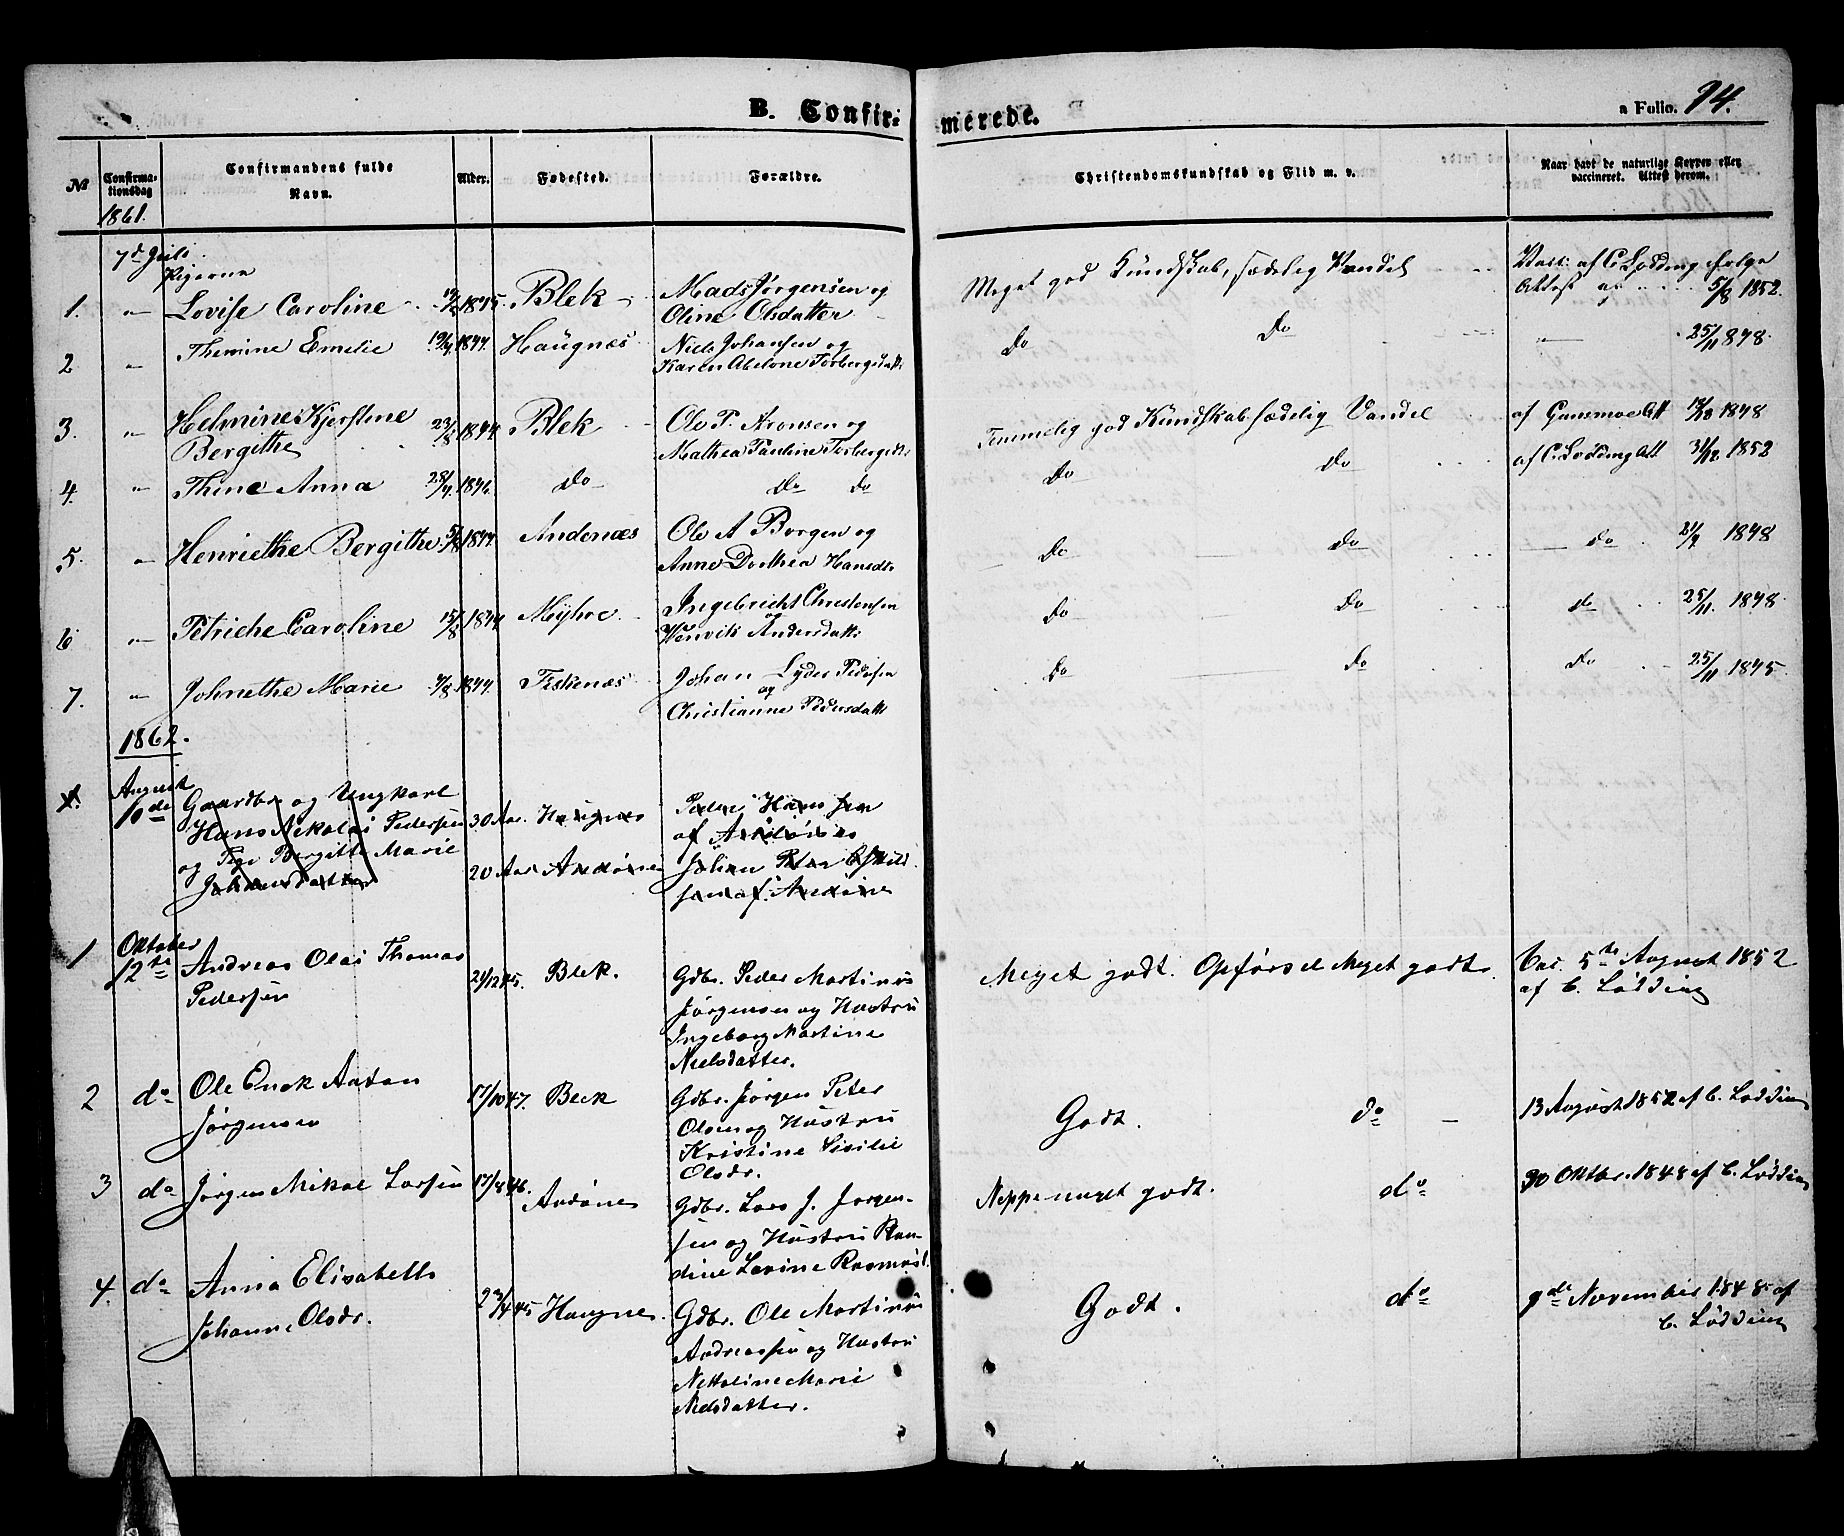 B. Confirmerede.
a Folio. 94.
No Confirmationsdag Confirmandens fulde Navn. Alder. Fødested. Forældre. Christendomskundskab og Flid m. v. Naar havt de naturlige Kopper eller vaccineret. Attest derom.
1861.
7d Juli.
Pigerne
1. " Lovise Caroline 1845. Blek Mads Jørgensen og Meget god Kundskab, sædelig Vandel Vacc. af C. Lødding ifølge
Oline Olsdatter Attest af 5/8 1852.
2 " Themine Emelie 1844. Haugnæs Niels Johansen og Do Do " 25/11 1848.
Karen Abelone Torbergsdatt.
3. " Helmine Kjerstine 23/8 1844 Blek Ole P. Aronsen og Temmelig god Kundskab sædelig Vandel af Gunsmoe Att 1848
Bergithe Mathea Pauline Torbergsdtr
4. " Thine Anna 28/4. 1846. do do do Do do af C. Lødding Att 31/12 1852
5. " Henriethe Bergithe 1844. Andenæs Ole A Borgen og Do do do 2/4 1848
Anne Dorthea Hansdtr
6 " Petriche Caroline 15/8 1844 Myhre Ingebricht Christensen Do Do do 25/11. 1848.
og
Andersdattr
7. " Johnethe Marie 4/8 1844. Fiskenæs Johan Lyder Pedersen Do Do Do 25/11 1845.
og
Christianne Pedersdattr
1862.
1. August 10de Gaardbr og Ungkarl
Hans Nikolai Pedersen 30 Aar. Haugnes Peder Hansen
af Andønes
og Pige Bergitte Marie 20 Aar Andønes Johan Peter Eskild
Johansdatter sen af Andønes
1 Oktober 12te Andreas Olai Thomas Pedersen 21/12 45. Blek. Gdbr. Peder Martinus Meget godt. Opførsel Meget godt. Vac. 5te August 1852
Jørgensen og Hustru af C. Lødding
Ingeborg Martine
Nielsdatter.
2 do Ole Enok Anton 17/10 47. Bleik Gdbr. Jørgen Peter Godt. do 13 August 1852 af C. Lødding
Jørgensen Olsen og Hustru
Kristine Sisilie
Olsdr.
3 do Jørgen Mikal Larsen 17/8 46. Andønes Gdbr. Lars J. Jørgen- Neppe meget godt. do 30 Oktbr. 1848 af C. Lødding
sen og Hustru Ran-
dine Lovine Rasmusd.
4. do Anna Elisabeth 23/4 45 Haugnes. Gdbr. Ole Martinus Godt. do 9de November 1848 af
Johanne Olsdr. Andreassen og Hustru C. Lødding
Nettoline Marie
Nielsdatter.